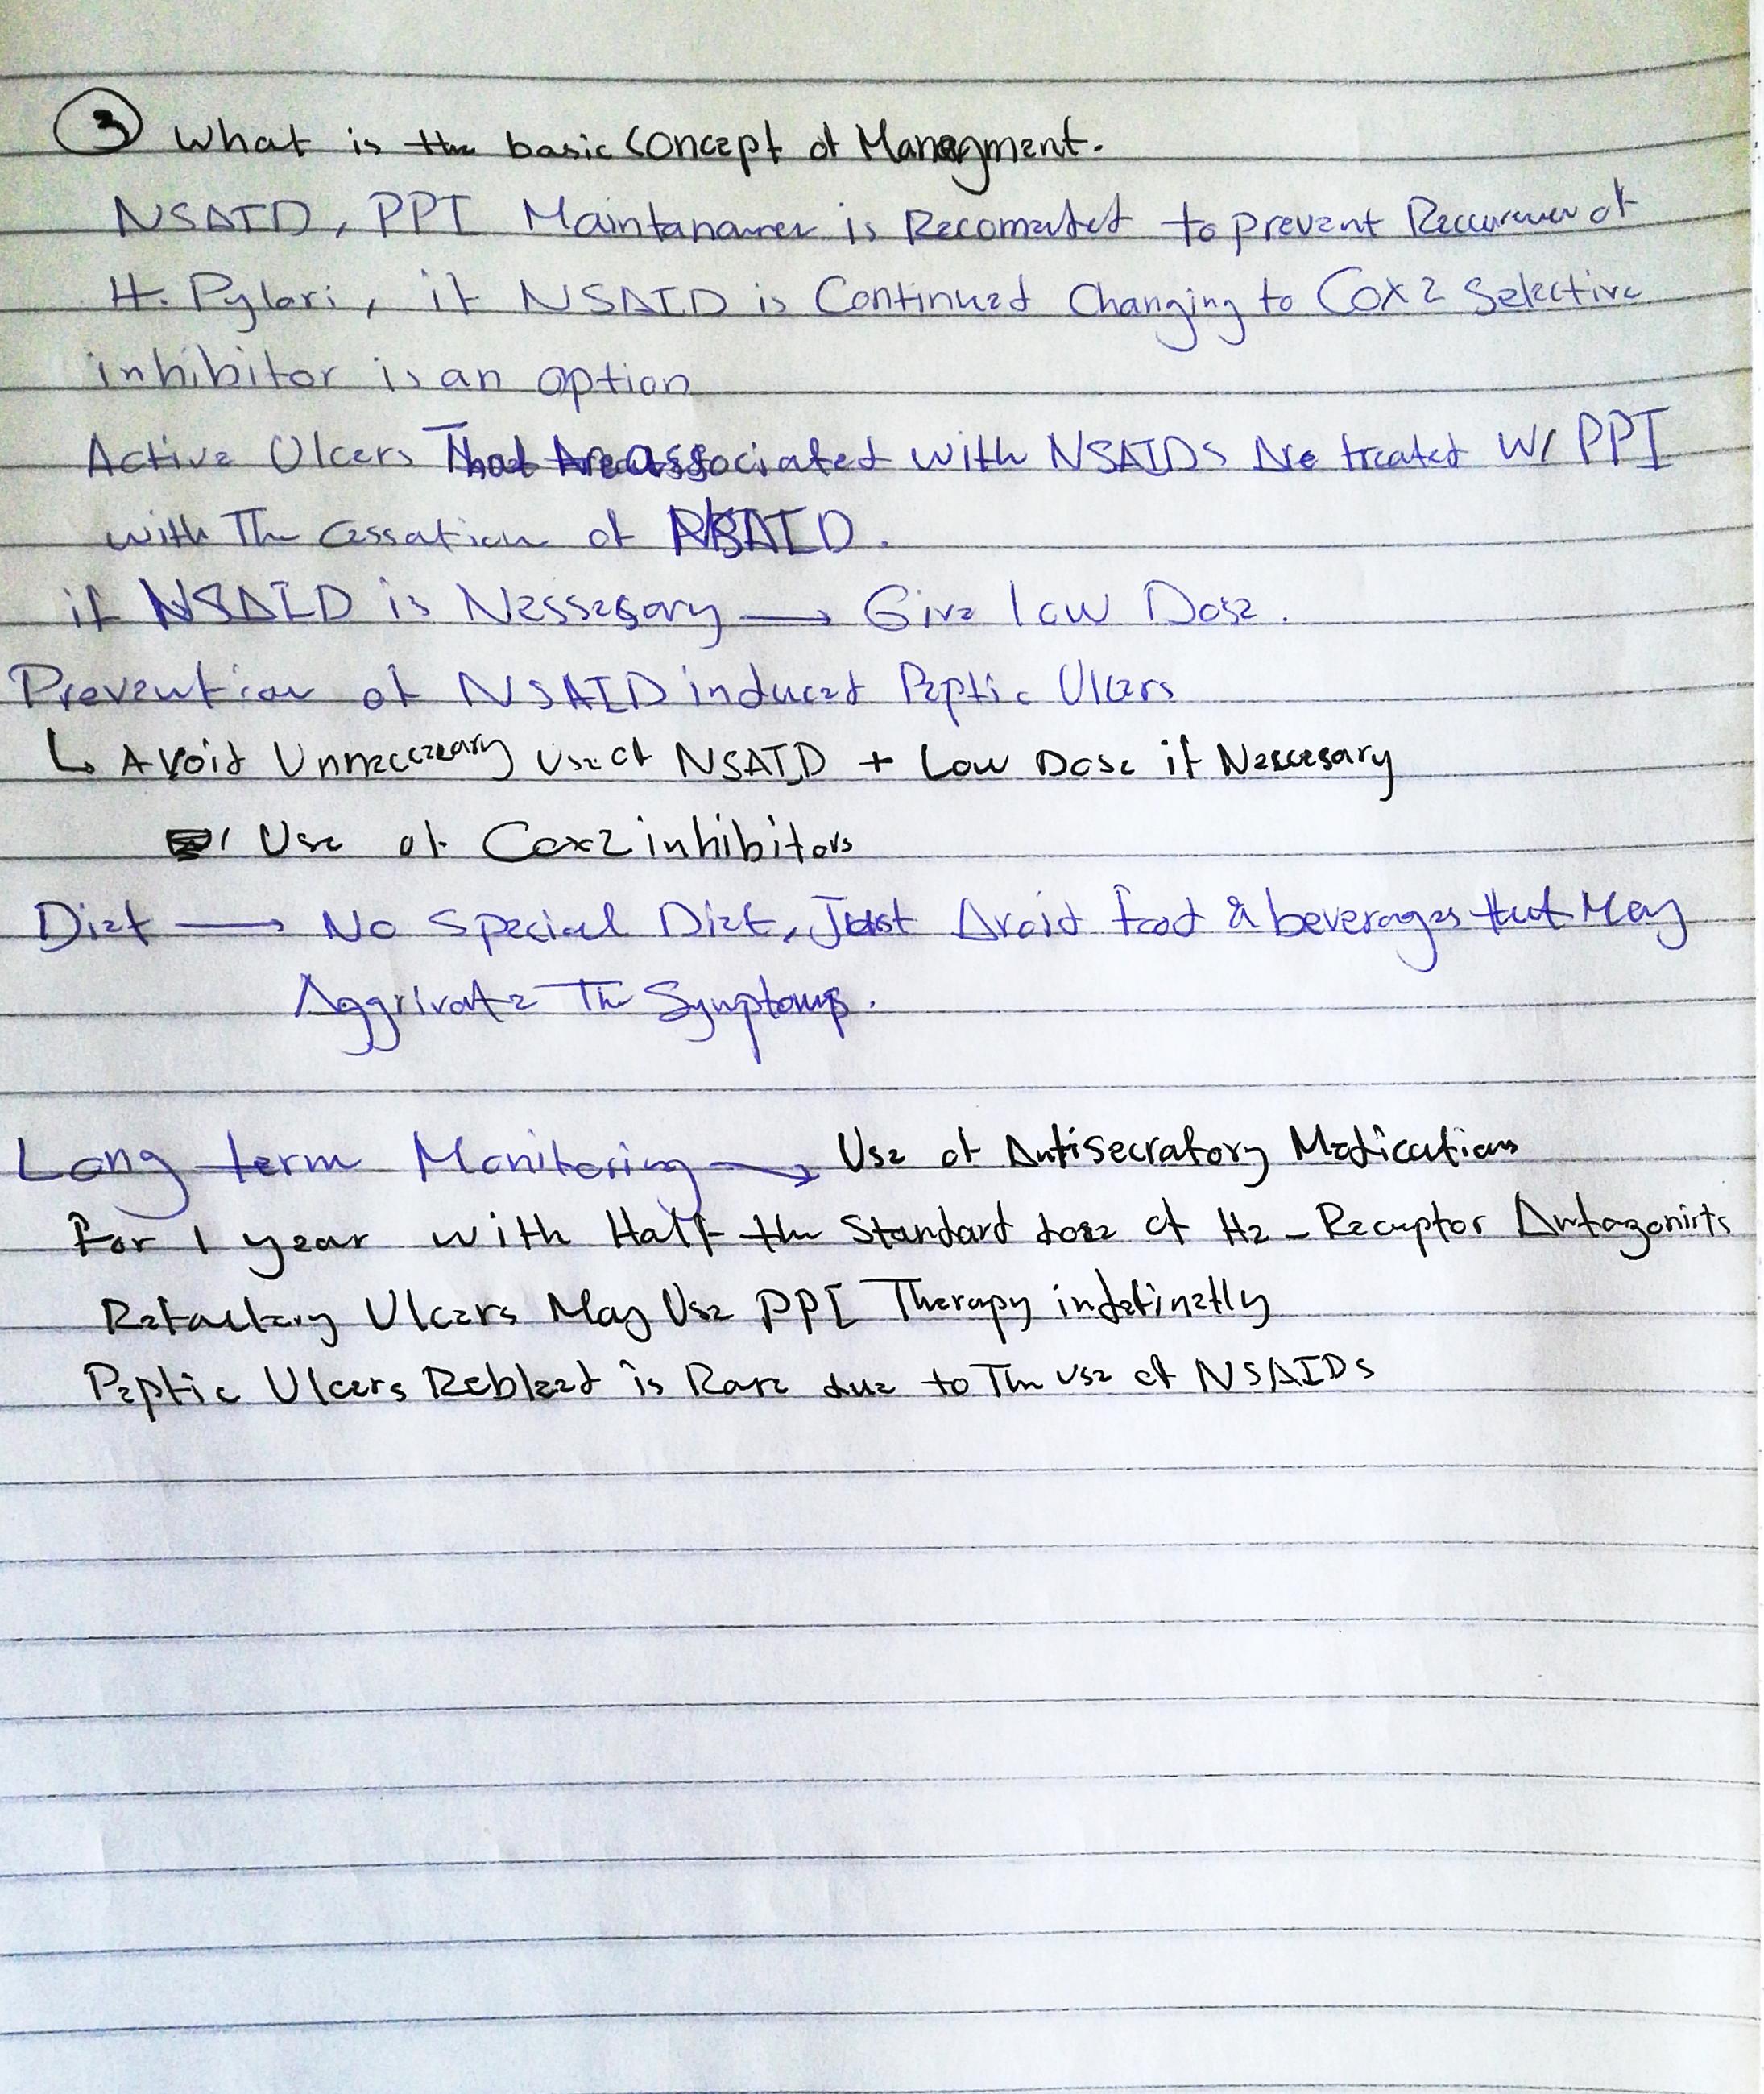 3 What is the basic Concept of Managment.
NSAID, PPI Maintanance is Recomended to prevent Recurrence of
H. Pylori, if NSAID is Continued Changing to Cox 2 Selective
inhibitor is an option
Active Ulcers That Are associated with NSAIDs Are treated W/ PPI
with The cessation of NSAID.
if NSAID is Nessesary → Give low Dose.
Prevention of NSAID induced Peptic Ulcers
↳ Avoid Unneccesary Use of NSAID + Low Dose if Neccesary
Use of Cox2 inhibitors
Diet → No Special Diet, Just Avoid food & beverages that May
Aggrivate The Symptoms.
Long term Monitoring → Use of Antisecratory Medications
For 1 year with Half the Standard dose of H2-Receptor Antagonists
Refactery Ulcers May Use PPI Therapy indefinetly
Peptic Ulcers Rebleed is Rare due to The use of NSAIDs